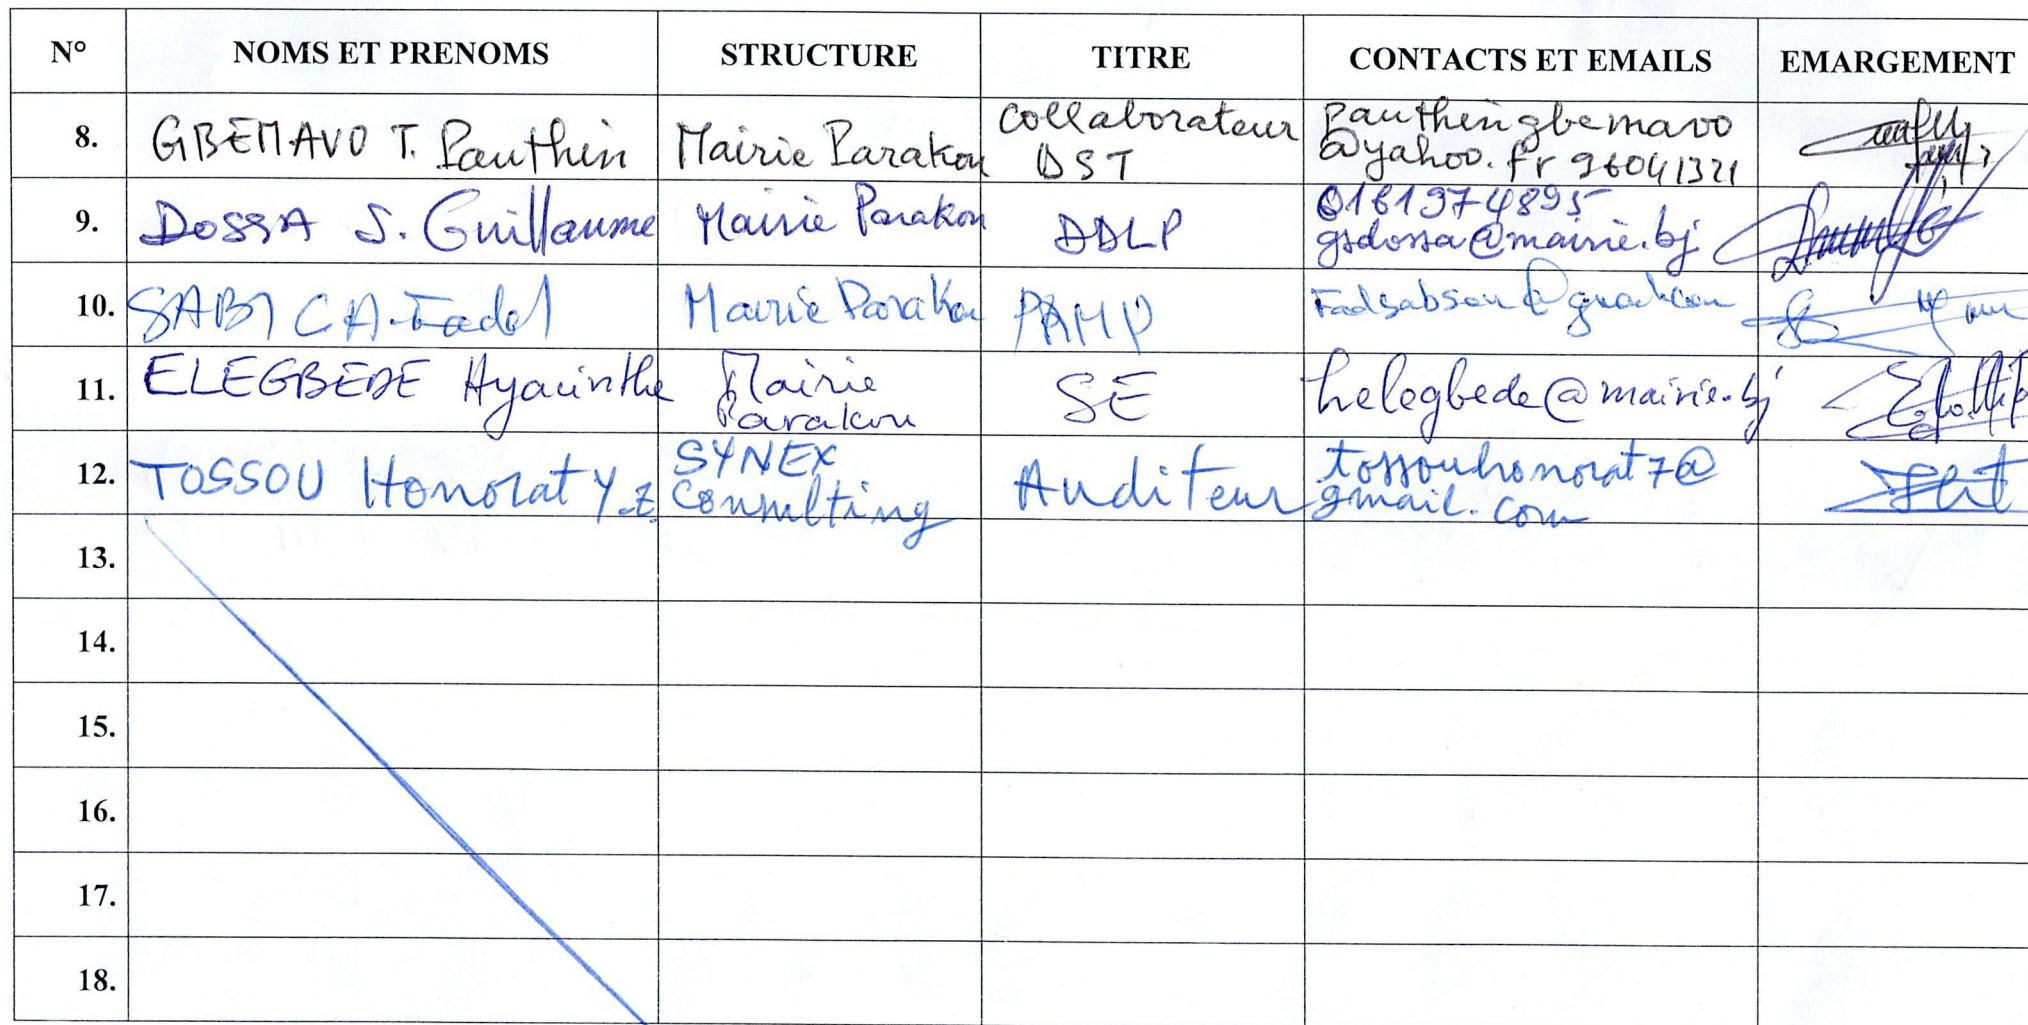 N° NOMS ET PRENOMS STRUCTURE TITRE CONTACTS ET EMAILS EMARGEMENT
8. GBEMAVO T. Pauthin Mairie Parakou Collaborateur DST pauthingbemavo @yahoo.fr 96041321
9. DOSSA S. Guillaume Mairie Parakou DDLP 0161974895 gsdossa@mairie.bj
10. SABI C A. Fadel Mairie Parakou PRMP
11. ELEGBEDE Hyacinthe Mairie Parakou SE helegbede@mairie.bj
12. TOSSOU Honorat Y. Z. SYNEX Consulting Auditeur tossouhonorat7@ gmail.com
13.
14.
15.
16.
17.
18.